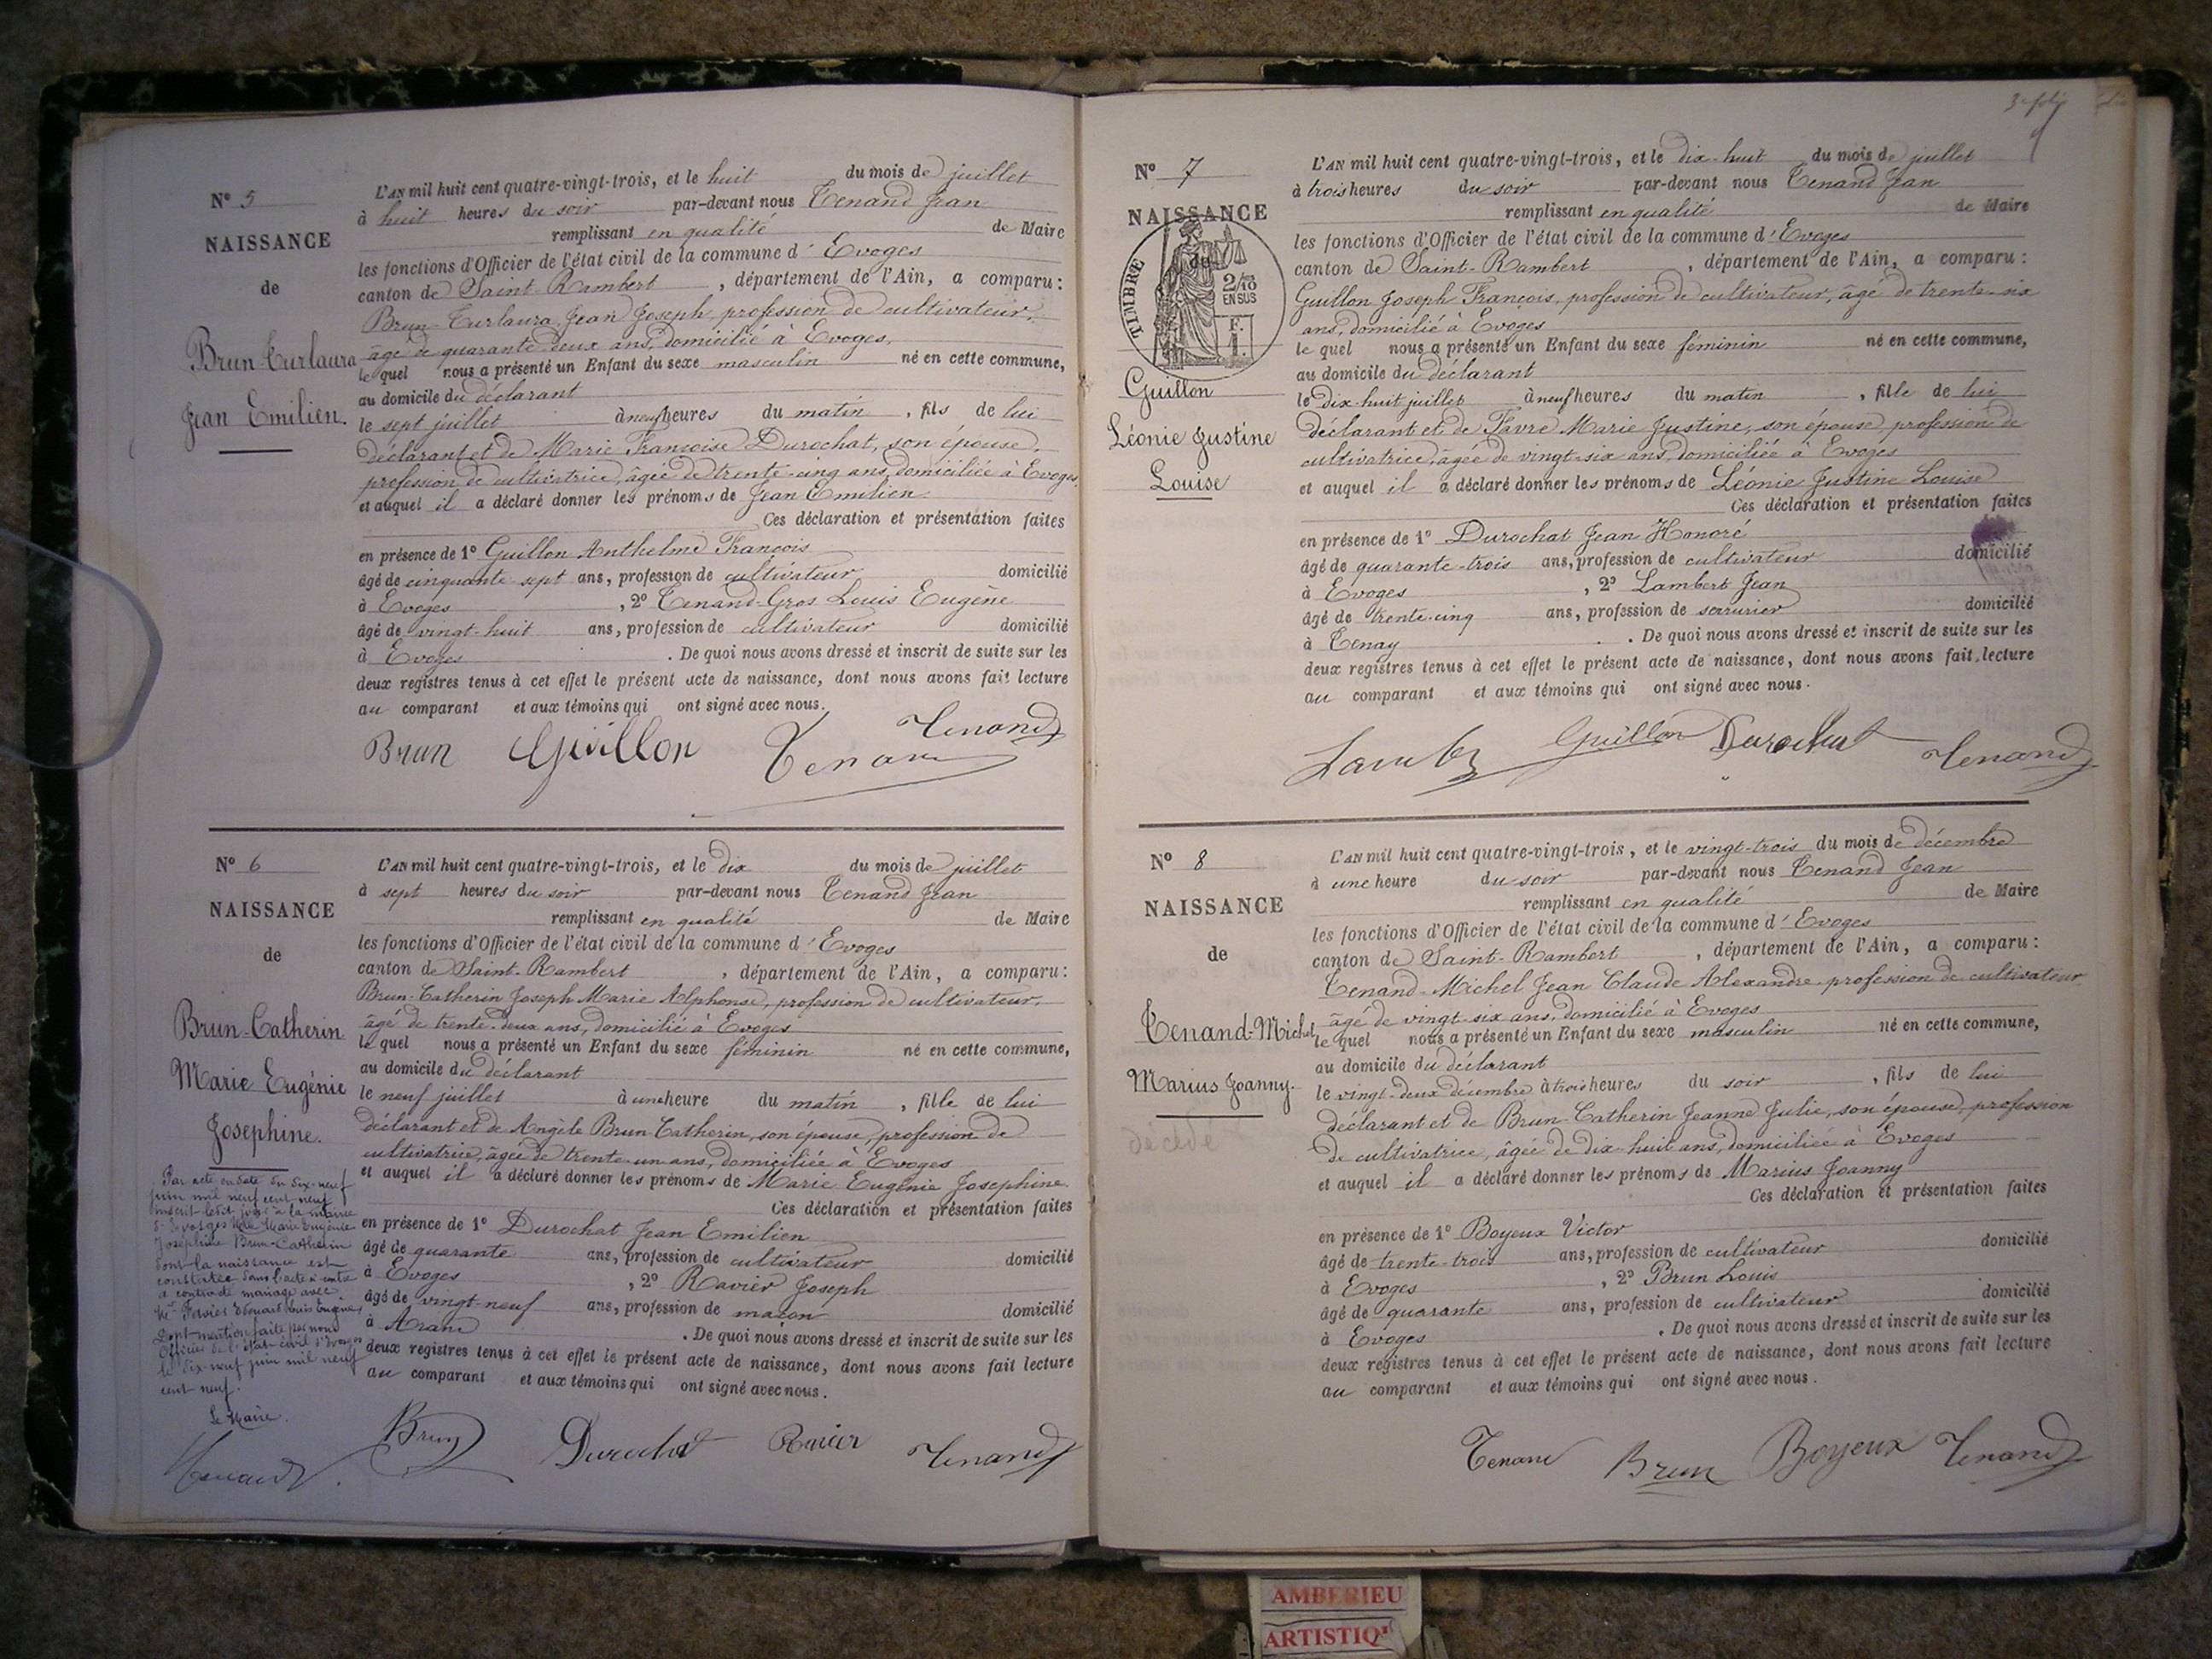 N° 5
NAISSANCE
de
Brun-Turlaura
Jean Emilien.
L'AN mil huit cent quatre-vingt-trois, et le huit du mois de juillet
à huit heures du soir par-devant nous Tenand Jean
remplissant en qualité de Maire
les fonctions d'Officier de l'état civil de la commune d' Evoges
canton de Saint-Rambert, département de l'Ain, a comparu:
Brun-Turlaura Jean Joseph, profession de cultivateur,
âgé de quarante-deux ans, domicilié à Evoges,
le quel nous a présenté un Enfant du sexe masculin né en cette commune,
au domicile du déclarant
le sept juillet à neuf heures du matin, fils de lui
déclarant et de Marie Françoise Durochat, son épouse,
profession de cultivatrice, âgée de trente-cinq ans, domiciliée à Evoges,
et auquel il a déclaré donner les prénoms de Jean Emilien.
Ces déclaration et présentation faites
en présence de 1° Guillon Anthelme François
âgé de cinquante-sept ans, profession de cultivateur domicilié
à Evoges, 2° Tenand-Gros Louis Eugène
âgé de vingt-huit ans, profession de cultivateur domicilié
à Evoges. De quoi nous avons dressé et inscrit de suite sur les
deux registres tenus à cet effet le présent acte de naissance, dont nous avons fait lecture
au comparant et aux témoins qui ont signé avec nous.
Brun Guillon Tenand Tenand
N° 6
NAISSANCE
de
Brun-Catherin
Marie Eugénie
Josephine.
Par acte en date du dix-neuf
juin mil neuf cent neuf
inscrit ledit jour à la mairie
d'Evosges Melle Marie Eugénie
Joséphine Brun-Catherin
dont la naissance est
constatée dans l'acte ci-contre
a contracté mariage avec
Mr Edouard Louis Eugène
Dont mention faite par nous
Officier de l'état-civil d'Evosges
le dix-neuf juin mil neuf
cent neuf.
Le Maire.
Tenand
L'AN mil huit cent quatre-vingt-trois, et le dix du mois de juillet
à sept heures du soir par-devant nous Tenand Jean
remplissant en qualité de Maire
les fonctions d'Officier de l'état civil de la commune d' Evoges
canton de Saint-Rambert, département de l'Ain, a comparu:
Brun-Catherin Joseph Marie Alphonse, profession de cultivateur,
âgé de trente-deux ans, domicilié à Evoges
le quel nous a présenté un Enfant du sexe féminin né en cette commune,
au domicile du déclarant
le neuf juillet à une heure du matin, fille de lui
déclarant et de Angèle Brun-Catherin, son épouse, profession de
cultivatrice, âgée de trente-un ans, domiciliée à Evoges
et auquel il a déclaré donner les prénoms de Marie Eugénie Josephine.
Ces déclaration et présentation faites
en présence de 1° Durochat Jean Emilien
âgé de quarante ans, profession de cultivateur domicilié
à Evoges, 2° Ravier Joseph
âgé de vingt-neuf ans, profession de maçon domicilié
à Aranc. De quoi nous avons dressé et inscrit de suite sur les
deux registres tenus à cet effet le présent acte de naissance, dont nous avons fait lecture
au comparant et aux témoins qui ont signé avec nous.
Brun Durochat Ravier Tenand
3e folio
N° 7
NAISSANCE
de
TIMBRE
2/10
EN SUS
F.
1.
Guillon
Léonie Justine
Louise
L'AN mil huit cent quatre-vingt-trois, et le dix-huit du mois de juillet
à trois heures du soir par-devant nous Tenand Jean
remplissant en qualité de Maire
les fonctions d'Officier de l'état civil de la commune d' Evoges
canton de Saint-Rambert, département de l'Ain, a comparu:
Guillon Joseph François, profession de cultivateur, âgé de trente-six
ans, domicilié à Evoges
le quel nous a présenté un Enfant du sexe féminin né en cette commune,
au domicile du déclarant
le dix-huit juillet à neuf heures du matin, fille de lui
déclarant et de Favre Marie Justine, son épouse, profession de
cultivatrice, âgée de vingt-six ans, domiciliée à Evoges
et auquel il a déclaré donner les prénoms de Léonie Justine Louise
Ces déclaration et présentation faites
en présence de 1° Durochat Jean Honoré
âgé de quarante-trois ans, profession de cultivateur domicilié
à Evoges, 2° Lambert Jean
âgé de trente-cinq ans, profession de serrurier domicilié
à Tenay. De quoi nous avons dressé et inscrit de suite sur les
deux registres tenus à cet effet le présent acte de naissance, dont nous avons fait lecture
au comparant et aux témoins qui ont signé avec nous.
Guillon Durochat Tenand
N° 8
NAISSANCE
de
Tenand-Michel
Marius Joanny.
décédé
L'AN mil huit cent quatre-vingt-trois, et le vingt-trois du mois de décembre
à une heure du soir par-devant nous Tenand Jean
remplissant en qualité de Maire
les fonctions d'Officier de l'état civil de la commune d' Evoges
canton de Saint-Rambert, département de l'Ain, a comparu:
Tenand-Michel Jean Claude Alexandre, profession de cultivateur,
âgé de vingt-six ans, domicilié à Evoges
le quel nous a présenté un Enfant du sexe masculin né en cette commune,
au domicile du déclarant
le vingt-deux décembre à trois heures du soir, fils de lui
déclarant et de Brun-Catherin Jeanne Julie, son épouse, profession
de cultivatrice, âgée de dix-huit ans, domiciliée à Evoges
et auquel il a déclaré donner les prénoms de Marius Joanny
Ces déclaration et présentation faites
en présence de 1° Boyeux Victor
âgé de trente-trois ans, profession de cultivateur domicilié
à Evoges, 2° Brun Louis
âgé de quarante ans, profession de cultivateur domicilié
à Evoges. De quoi nous avons dressé et inscrit de suite sur les
deux registres tenus à cet effet le présent acte de naissance, dont nous avons fait lecture
au comparant et aux témoins qui ont signé avec nous.
Tenand Brun Boyeux Tenand
AMBERIEU
ARTISTIQ